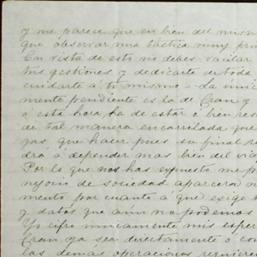 y me parece que en bien del mism
que observar una táctica muy pru
En vista de esto no debes vacilar
tus gestiones y dedicarte de toda
cuidarte á ti mismo - La únic
mento pendiente es la de Gran y
á esta hora ha de estar o bien res
de tal manera encarrilada que
que hacer pues su final
drá á depender mas bien del
Por lo que nos has expuesto me p
negocio de sociedad aparece
mento por cuanto á que exige
y datos que aun no podemos
Yo cifro unicamente mis esper
Gran ya sea directamente o con
las demas operaciones requieren